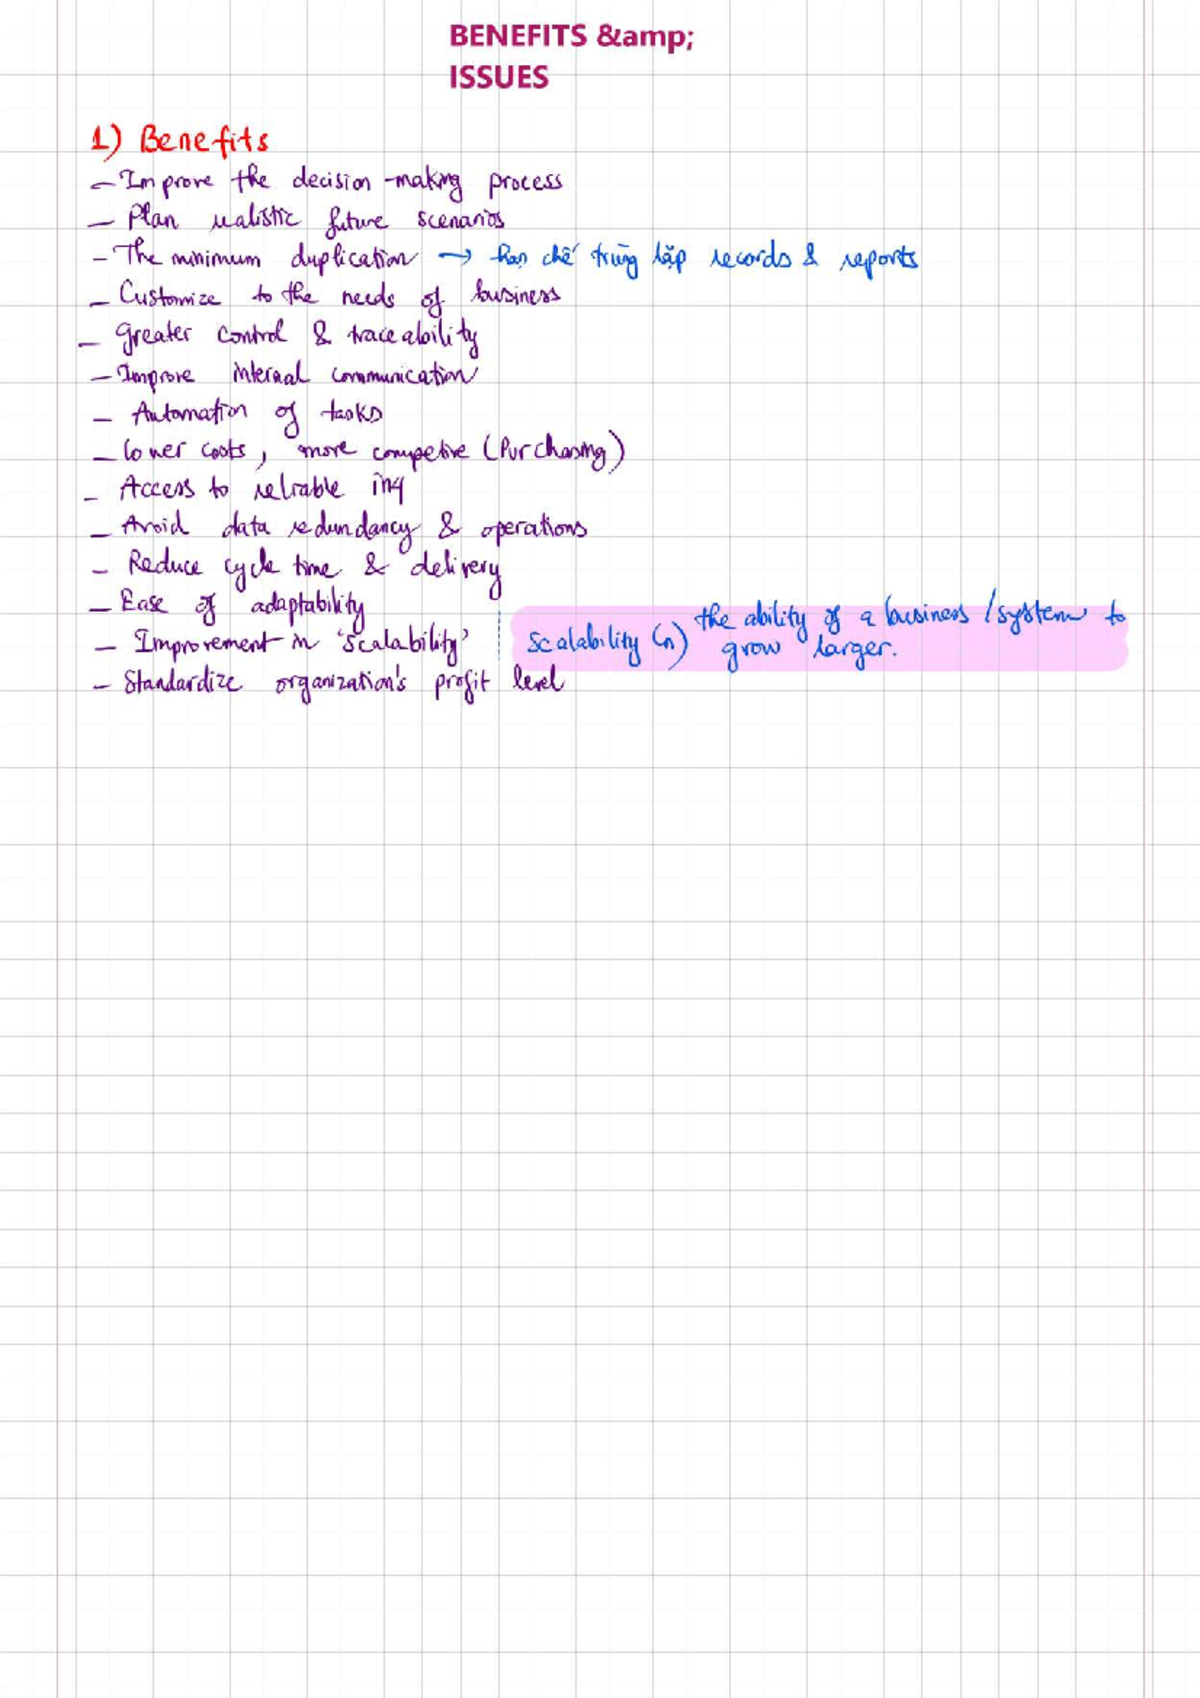 BENEFITS &amp;
ISSUES
1) Benefits
- Improve the decision-making process
- Plan realistic future scenarios
- The minimum duplication → hạn chế trùng lặp records & reports
- Customize to the needs of business
- Greater control & traceability
- Improve internal communication
- Automation of tasks
- lower costs, more competive (Purchasing)
- Access to reliable in4
- Avoid data redundancy & operations
- Reduce cycle time & delivery
- Ease of adaptability
- Improvement in 'scalability'
scalability (n) the ability of a business / system to
grow larger.
- Standardize organization's profit level